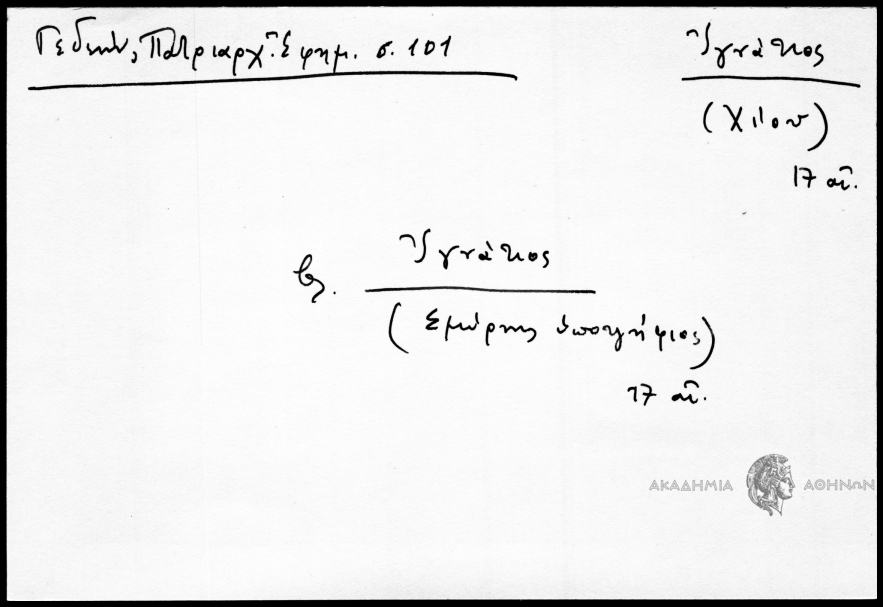 Γεδεών, Πατριαρχ. Ἐφημ. σ. 101
Ἰγνάτιος
(Χίου)
17 αἰ.
βλ. Ἰγνάτιος
(Σμύρνης ὑποψήφιος)
17 αἰ.
ΑΚΑΔΗΜΙΑ ΑΘΗΝΩΝ